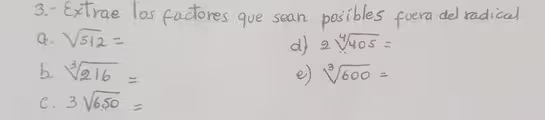 3.- Extrae los factores que sean posibles fuera del radical
a. √512 =
b. ∛216 =
c. 3√650 =
d) 2∜405 =
e) ∛600 =